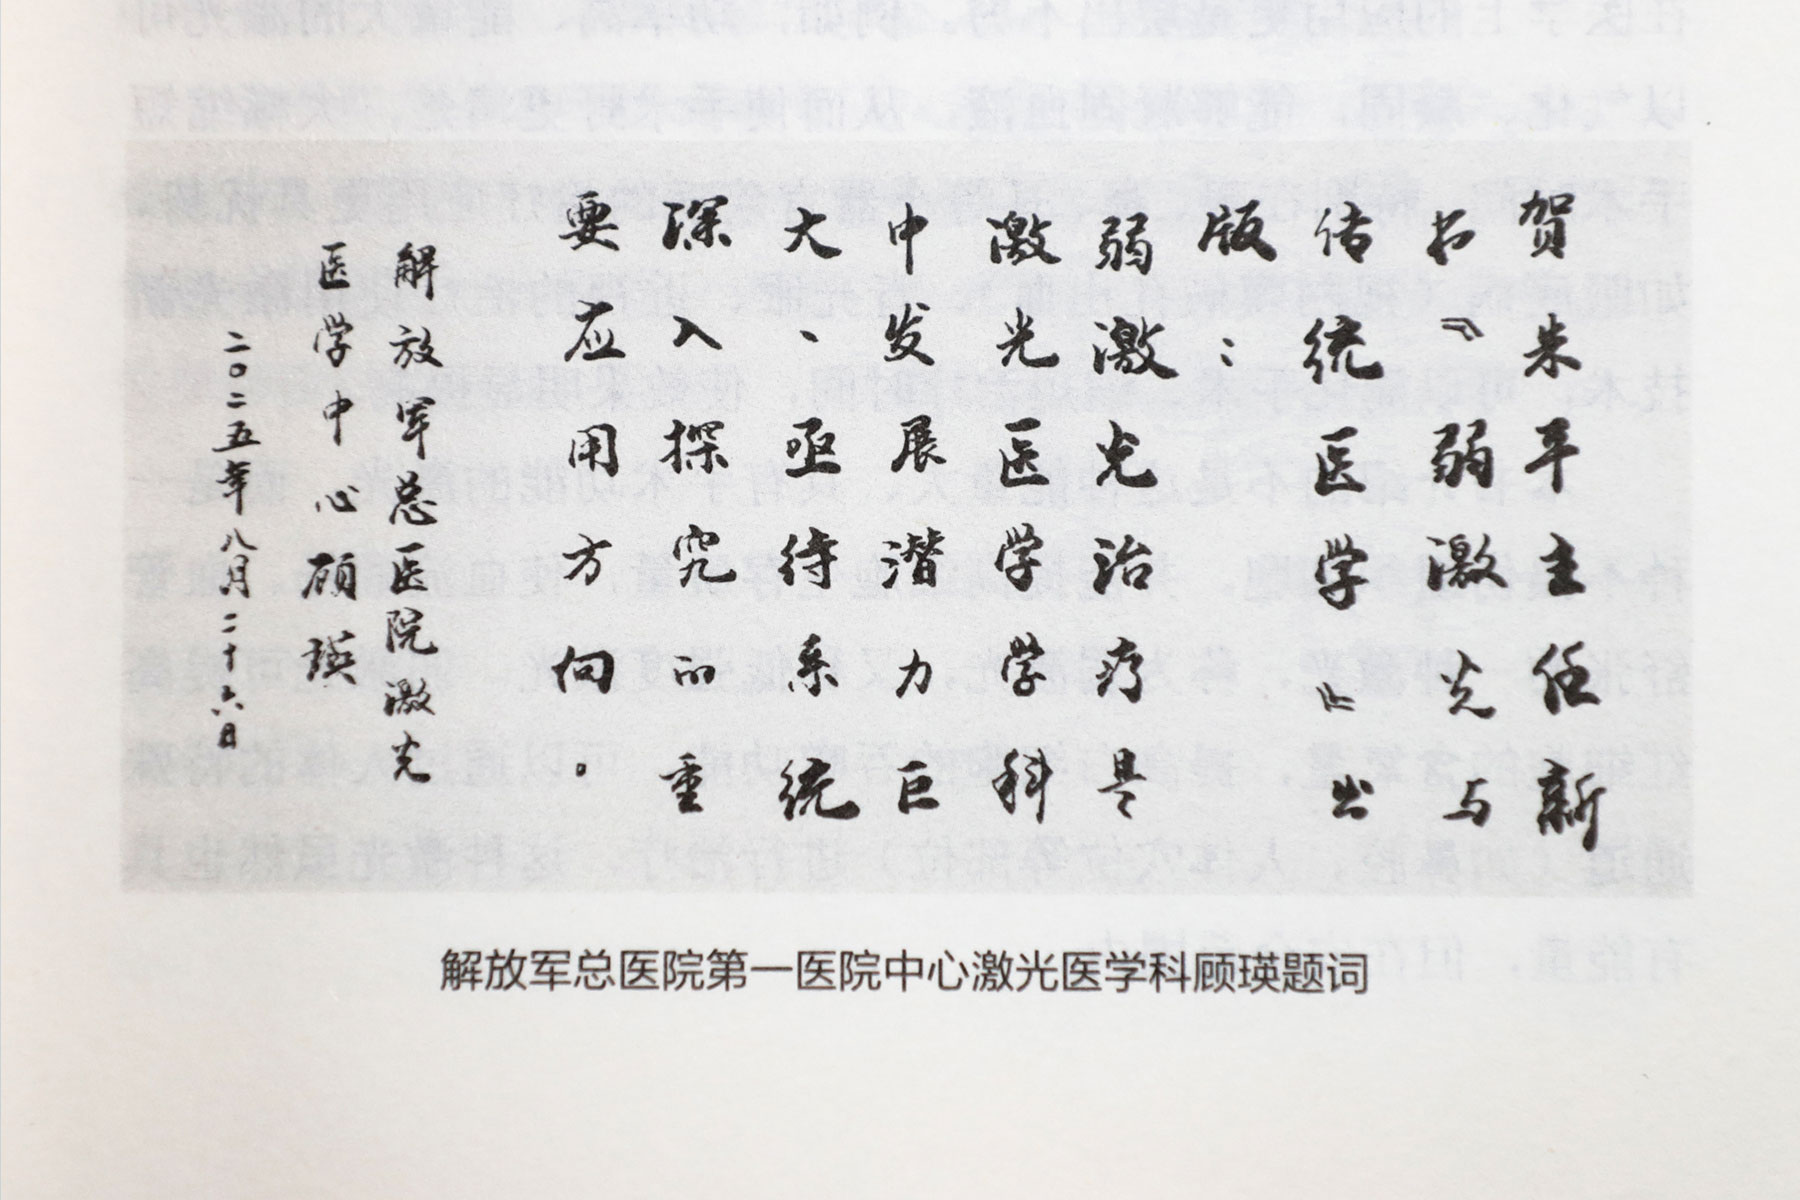 贺朱平主任新
书《弱激光与
传统医学》出
版：
弱激光治疗是
激光医学学科
中发展潜力巨
大、亟待系统
深入探究的重
要应用方向。
解放军总医院激光
医学中心顾瑛
二〇二五年八月二十六日
解放军总医院第一医院中心激光医学科顾瑛题词